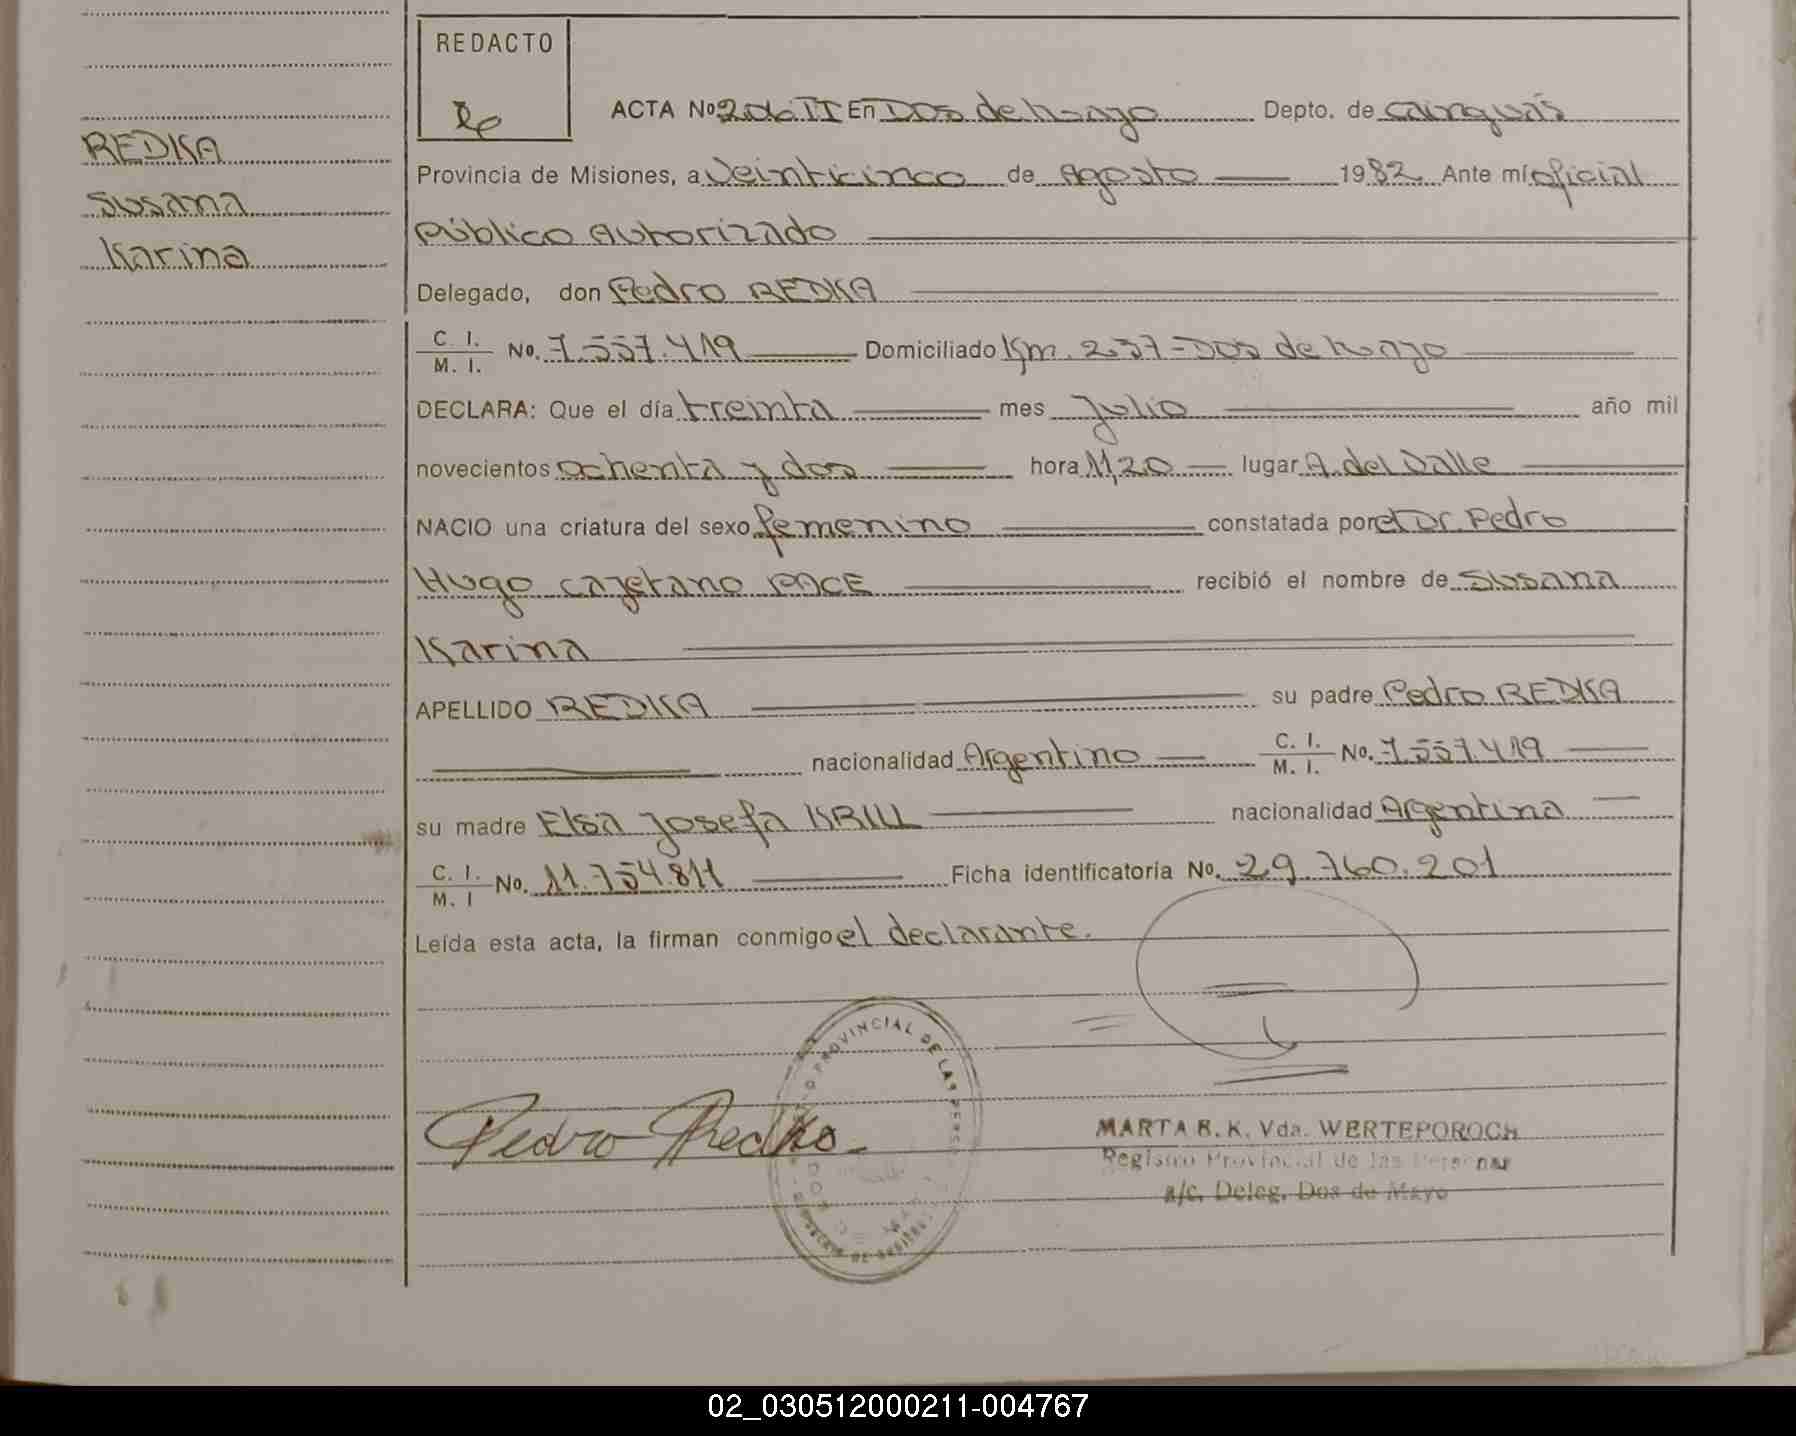 REDACTO
ACTA Nº 206 II En Dos de Mayo Depto. de Cainguás
REDKA
Susana
Karina
Provincia de Misiones, a Veinticinco de Agosto 1982 Ante mí oficial
Público Autorizado
Delegado, don Pedro REDKA
C. I. M. I. No. 7.557.419 Domiciliado Km. 237-Dos de Mayo
DECLARA: Que el día treinta mes Julio año mil
novecientos ochenta y dos hora 11,20 lugar A. del Valle
NACIO una criatura del sexo femenino constatada por el Dr. Pedro
Hugo Cayetano PACE recibió el nombre de Susana
Karina
APELLIDO REDKA su padre Pedro REDKA
nacionalidad Argentino C. I. M. I. No. 7.557.419
su madre Elsa Josefa KRILL nacionalidad Argentina
C. I. M. I No. 11.754.811 Ficha identificatoria No. 29.760.201
Leída esta acta, la firman conmigo el declarante.
PROVINCIAL DE LAS
Pedro Redko
MARTA B. K. Vda. WERTEPOROCH
Registro Provincial de las Personas
a/c. Deleg. Dos de Mayo
02_030512000211-004767